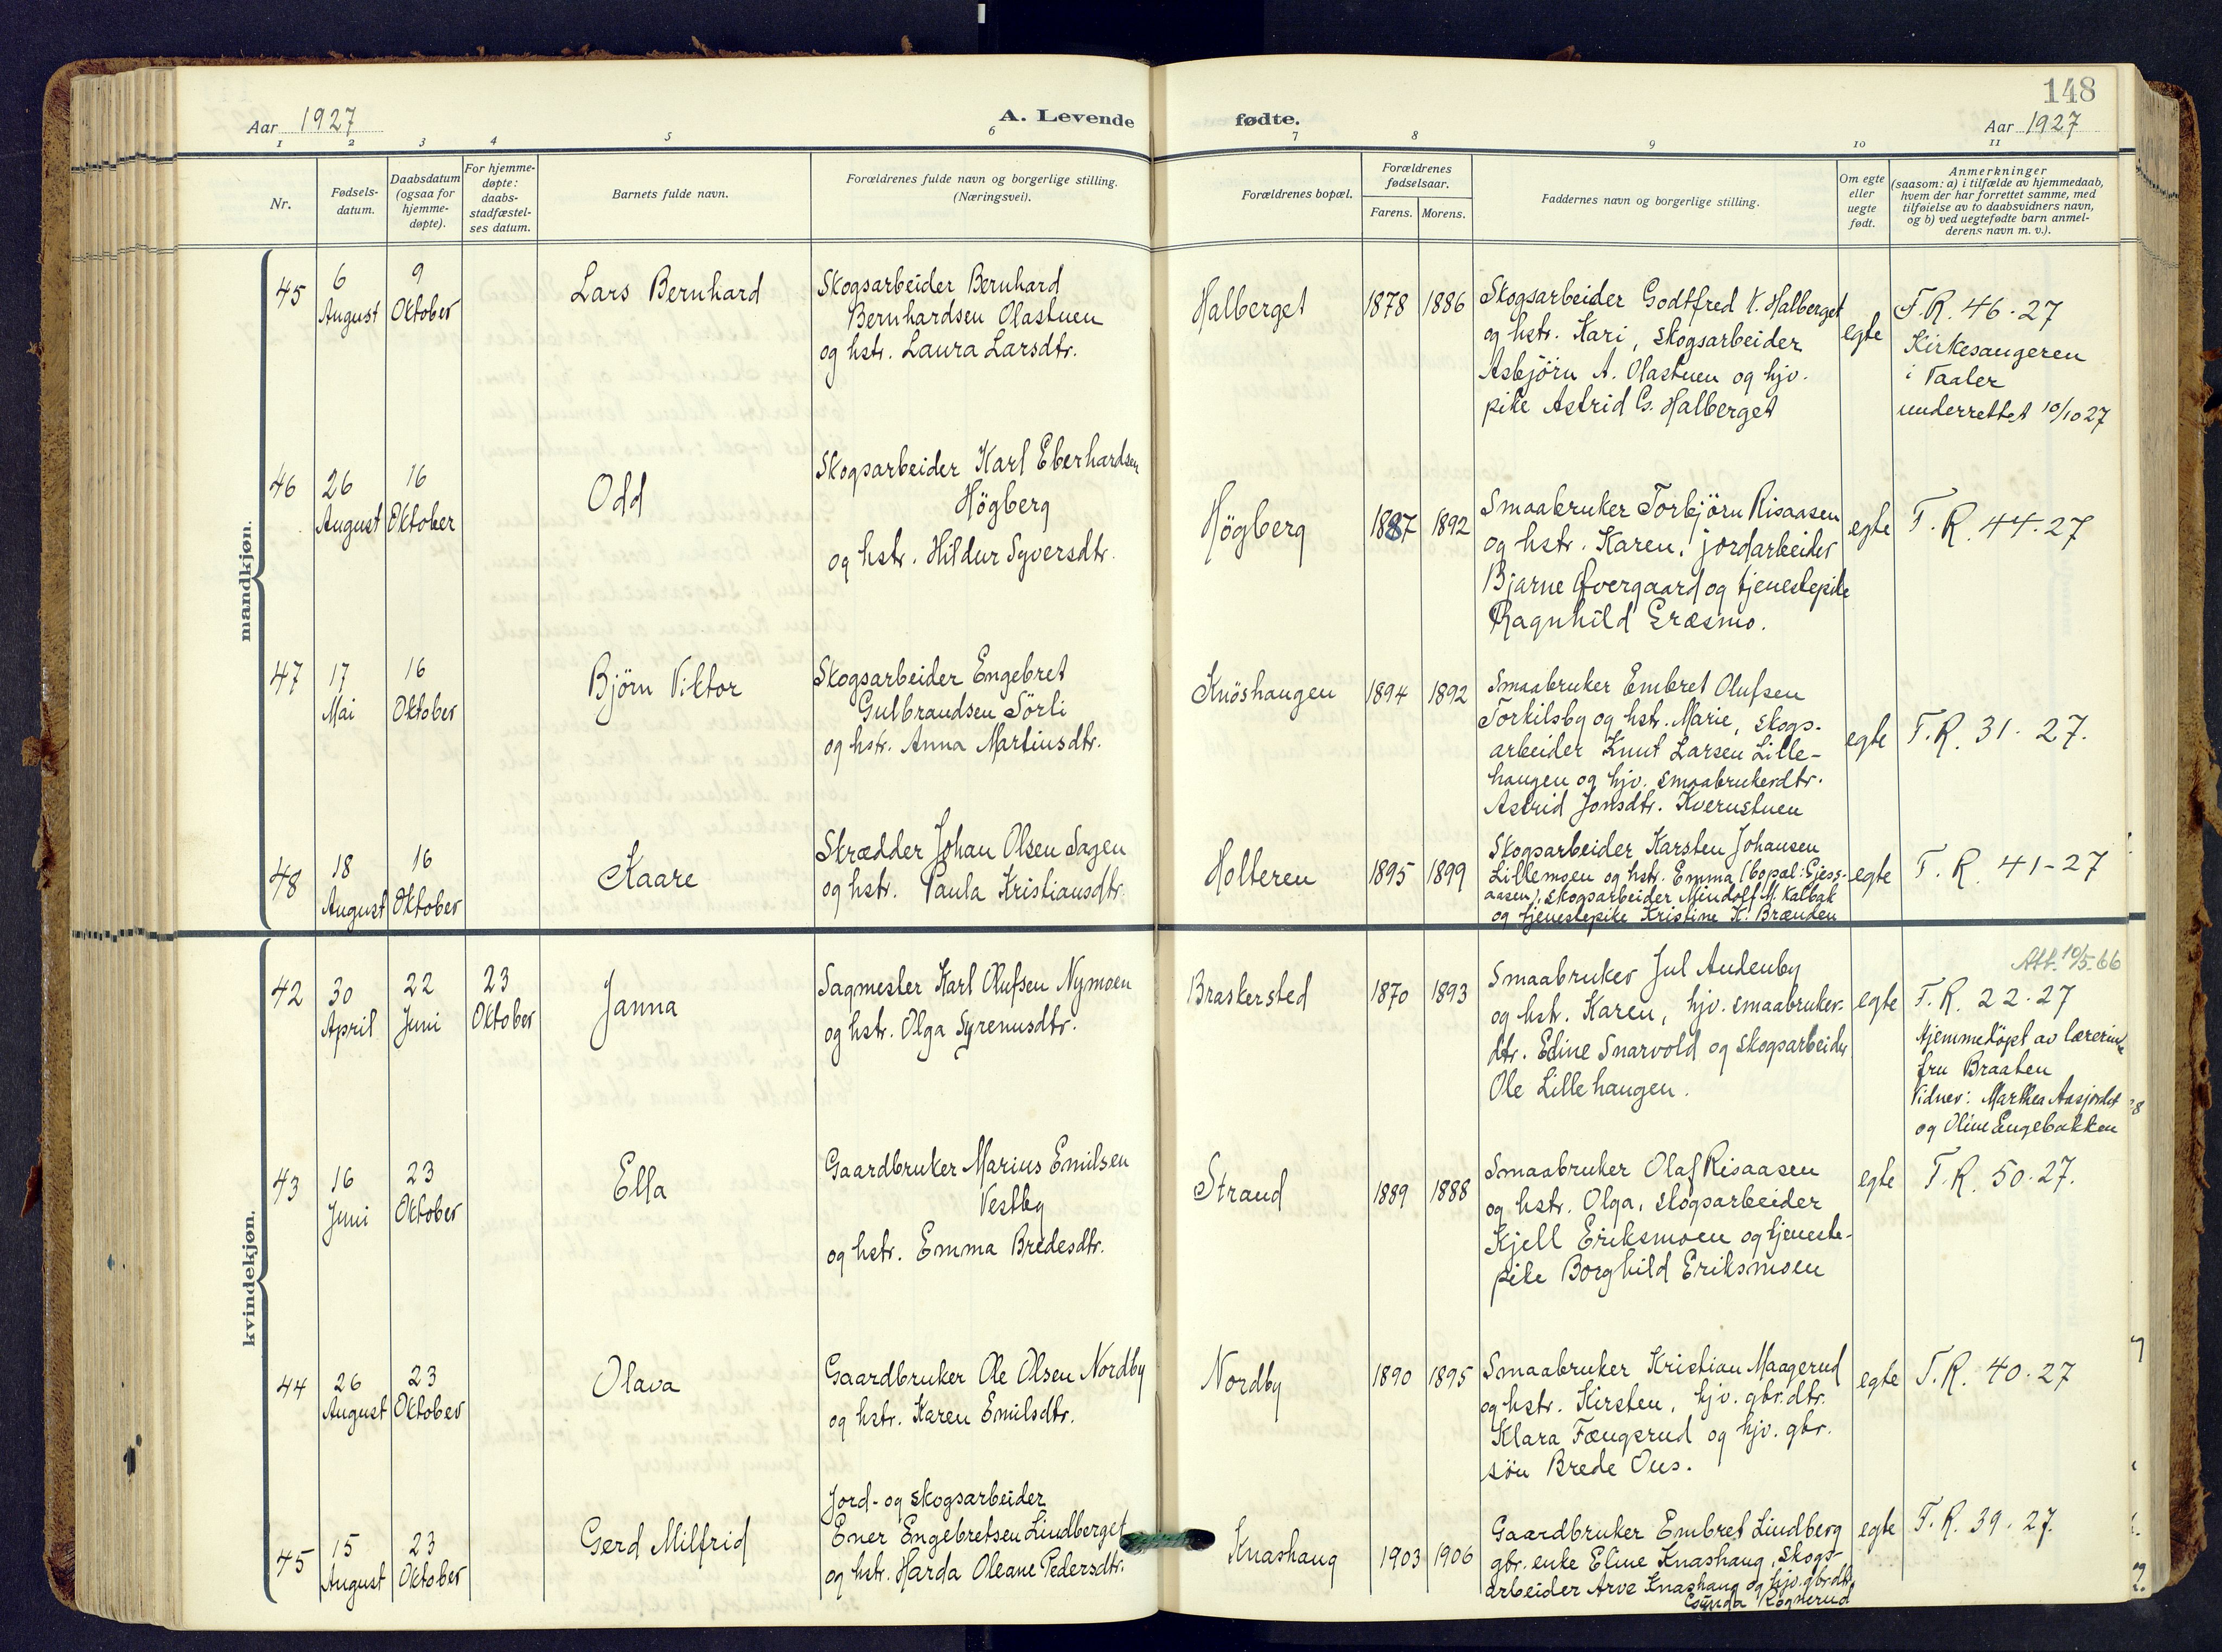 148
Aar 1927
A. Levende fødte.
Aar 1927
1 2 3 4 5 6 7 8 9 10 11
Nr.
Fødsels-
datum.
Daabsdatum
(ogsaa for
hjemme-
døpte).
For hjemme-
døpte:
daabs-
stadfæstel-
ses datum.
Barnets fulde navn.
Forældrenes fulde navn og borgerlige stilling.
(Næringsvei).
Forældrenes bopæl.
Forældrenes
fødselsaar.
Farens. Morens.
Faddernes navn og borgerlige stilling.
Om egte
eller
uegte
født.
Anmerkninger
(saasom: a) i tilfælde av hjemmedaab,
hvem der har forrettet samme, med
tilføielse av to daabsvidners navn,
og b) ved uegtefødte barn anmel-
derens navn m. v.).
mandkjøn.
45
6
August
9
Oktober
Lars Bernhard
Skogsarbeider Bernhard
Bernhardsen Olastuen
og hstr. Laura Larsdtr.
Halberget
1878
1886
Skogsarbeider Godtfred K. Halberget
og hstr. Kari, skogsarbeider
Asbjörn A. Olastuen og hjv.
pike Astrid G. Halberget
egte
F.R. 46-27
Kirkesangeren
i Vaaler
underrettet 10/10 27
46
26
August
16
Oktober
Odd
Skogsarbeider Karl Eberhardsen
Högberg
og hstr. Hildur Syversdtr.
Högberg
1887
1892
Smaabruker Torbjörn Risaasen
og hstr. Karen, jordarbeider
Bjarne Övergaard og tjenestepike
Ragnhild Græsmo.
egte
F.R. 44-27
47
17
Mai
16
Oktober
Björn Viktor
Skogsarbeider Engebret
Gulbrandsen Sörli
og hstr. Anna Martiusdtr.
Knöshaugen
1894
1892
Smaabruker Embret Olufsen
Torkilsby og hstr. Marie, skogs-
arbeider Knut Larsen Lille-
haugen og hjv. smaabrukerdtr.
Astrid Jonsdtr. Kvernstuen
egte
F.R. 31-27.
48
18
August
16
Oktober
Kaare
Skrædder Johan Olsen Sagen
og hstr. Paula Kristiansdtr.
Holteren
1895
1899
Skogsarbeider Karsten Johansen
Lillemoen og hstr. Emma (bopæl: Gjess-
aasen), skogsarbeider Mindolf M. Kalbak
og tjenestepike Kristine K. Brænden
egte
F.R. 41-27
kvindekjøn.
42
30
April
22
Juni
23
Oktober
Janna
Sagmester Karl Olufsen Nymoen
og hstr. Olga Syrenusdtr.
Braskersted
1870
1893
Smaabruker Jul Audenby
og hstr. Karen, hjv. smaabruker-
dtr. Edine Snarvold og skogsarbeider
Ole Lillehaugen.
egte
Att. 10/5-66
F.R. 22-27
Hjemmedöpt av lærerinde
fru Braaten
Vidner: Marthea Aasjordet
og Oline Engebakken
43
16
Juni
23
Oktober
Ella
Gaardbruker Marius Emilsen
Vestby
og hstr. Emma Bredesdtr.
Strand
1889
1888
Smaabruker Olaf Risaasen
og hstr. Olga, skogsarbeider
Kjell Eriksmoen og tjeneste-
pike Borghild Eriksmoen
egte
F.R. 50-27.
44
26
August
23
Oktober
Olava
Gaardbruker Ole Olsen Nordby
og hstr. Karen Emilsdtr.
Nordby
1890
1895
Smaabruker Kristian Maagerud
og hstr. Kirsten, hjv. gbr.dtr.
Klara Fængsrud og hjv. gbr.
sön Brede Ous.
egte
F.R. 40-27
45
15
August
23
Oktober
Gerd Milfrid
Jord- og skogsarbeider
Ener Engebretsen Lindberget
og hstr. Harda Oleane Pedersdtr.
Knashaug
1903
1906
Gaardbruker Embret Lindberg
gbr. enke Eline Knashaug, skogs-
arbeider Arve Knashaug og hjv. gbr.dtr.
Gunda Rognerud
egte
F.R. 39-27.